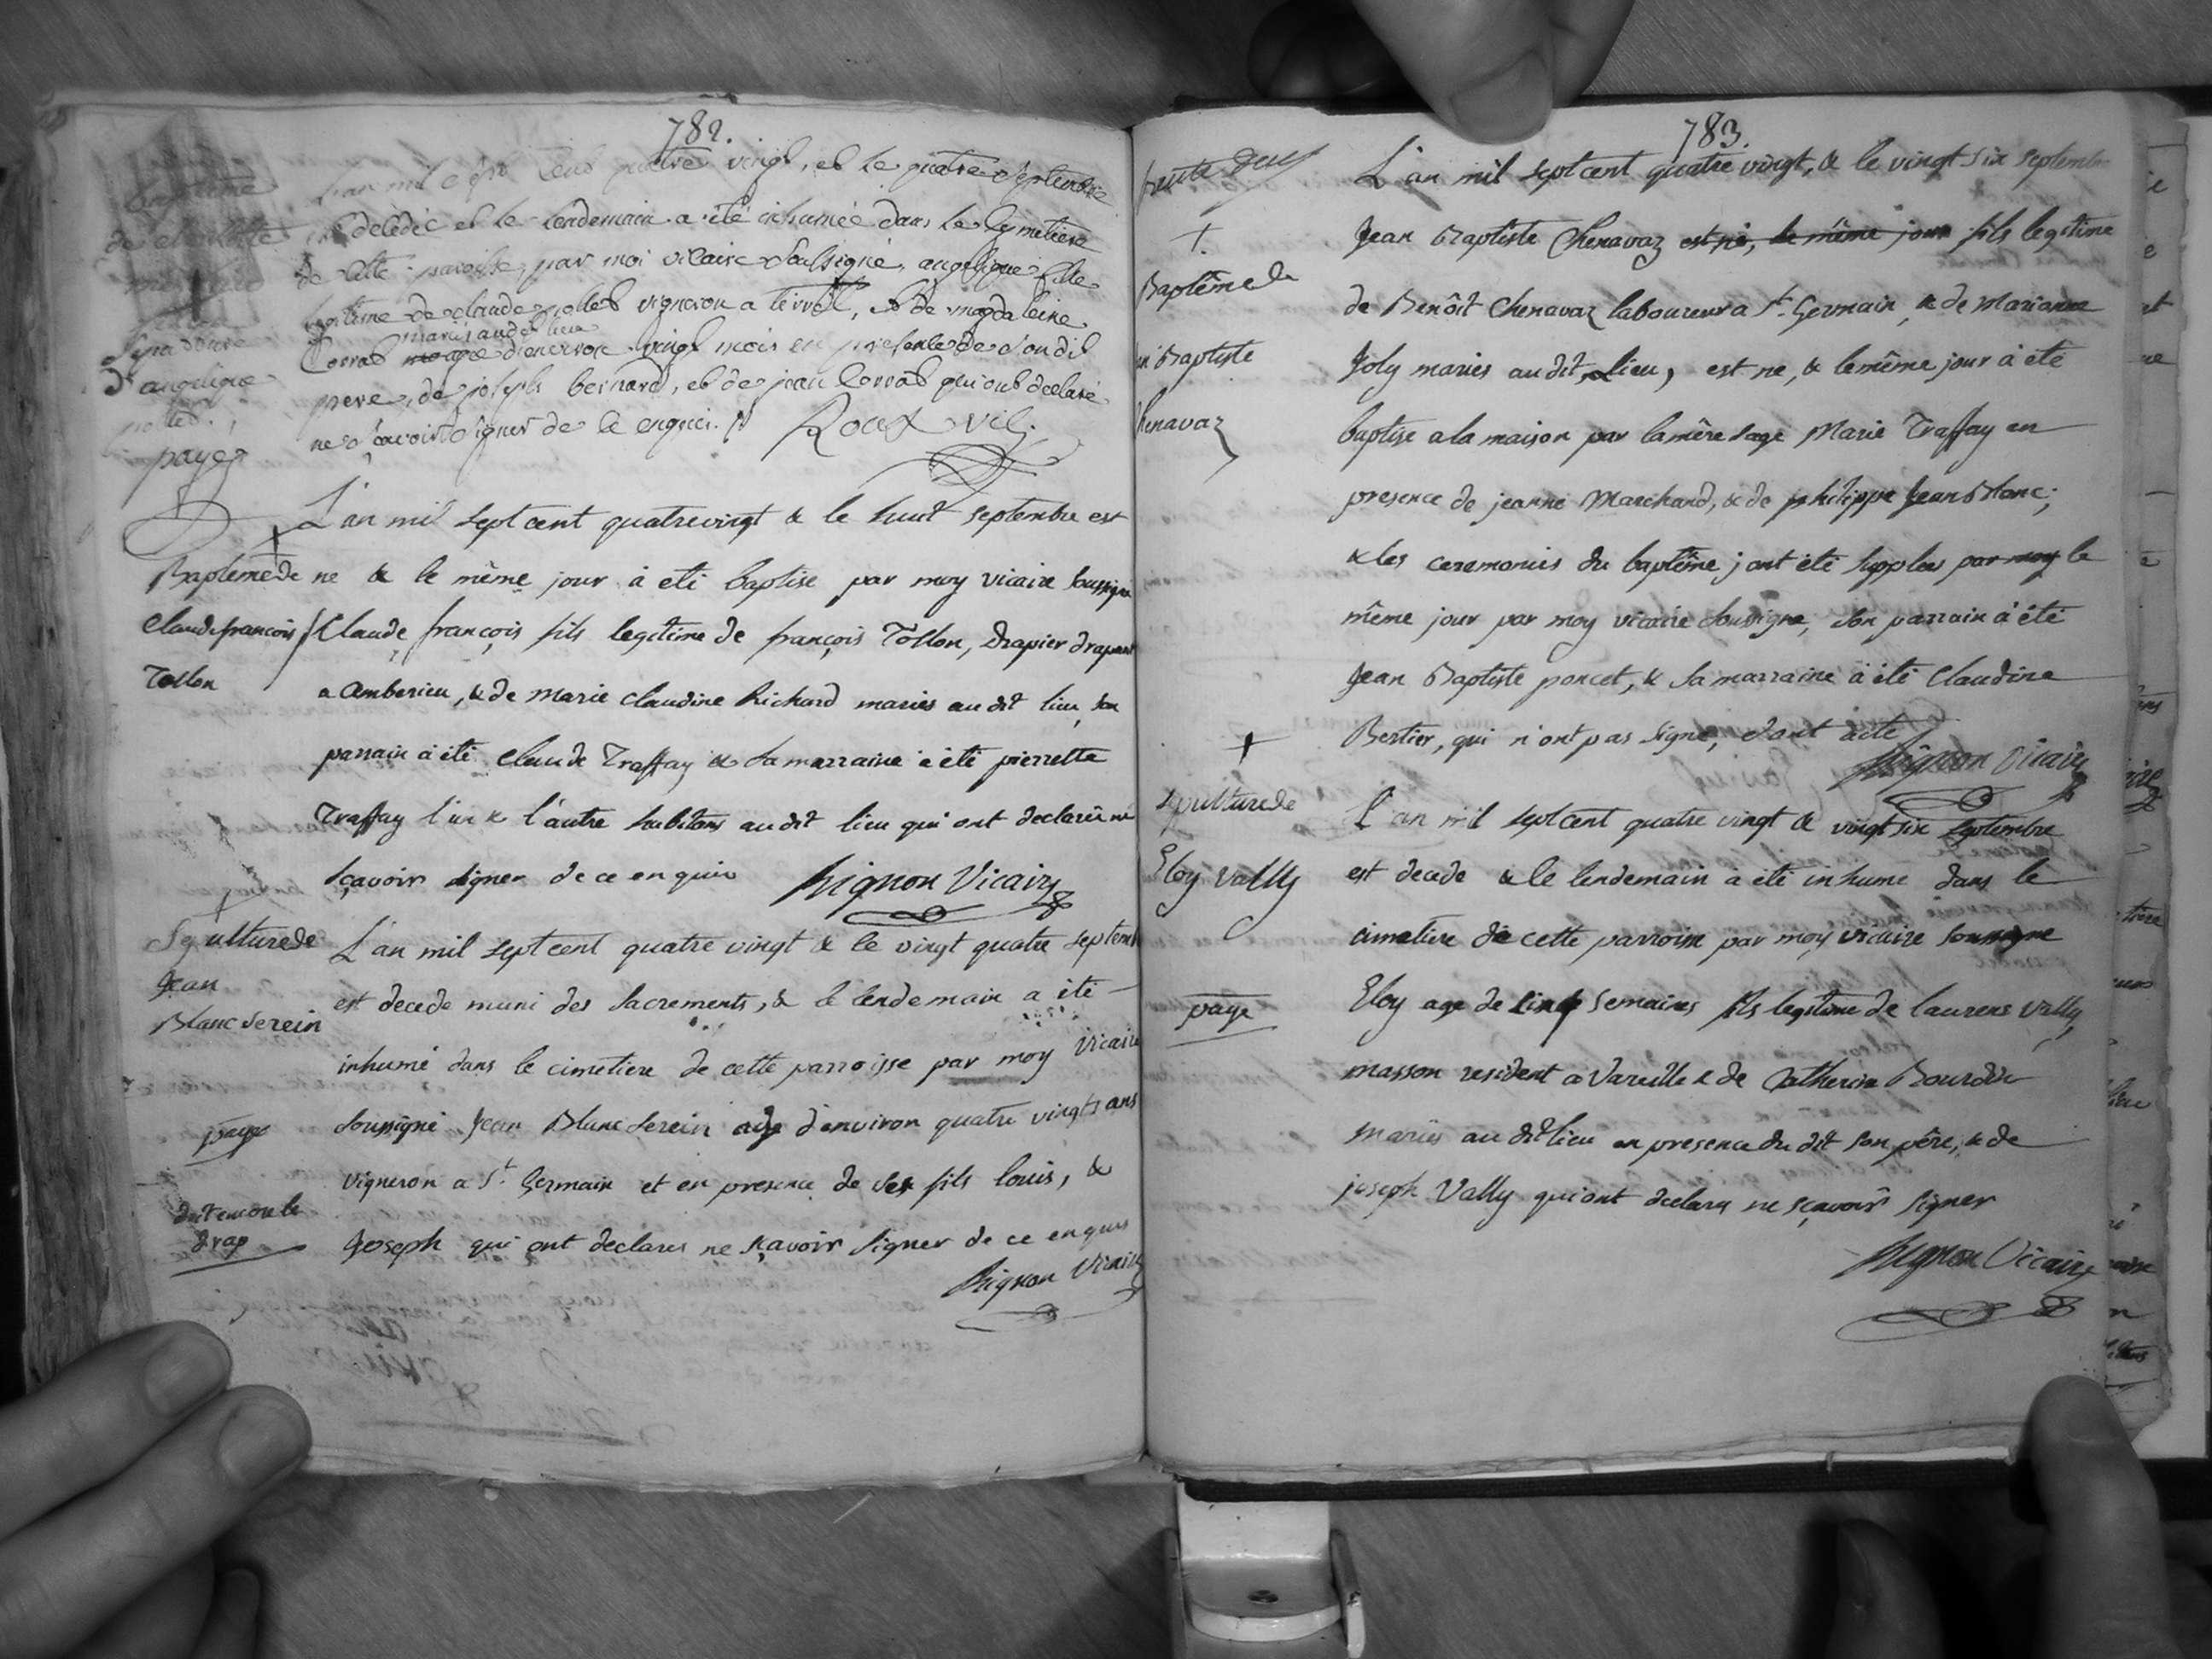 782.
L'an mil sept cent quatre vingt, et le quatre septembre
est décédée et le lendemain a été inhumée dans le cymetiere
de cette paroisse, par moi vicaire soussigné, angelique fille
legitime de claude pollet vigneron a tirret, et de magdeleine
mariés audit lieu
Corrad agée d'environ vingt mois en presence de son dit
pere, de joseph bernard, et de jean Corrad qui ont declaré
ne sçavoir signer de ce enquis. Roux vic.
Sepulture
d'angelique
pollet.
payez
L'an mil sept cent quatrevingt & le huit septembre est
Baptême de ne & le même jour à eté baptise par moy vicaire soussigne
Claude francois Claude françois fils legitime de françois Tollon, Drapier drapant
Tollon a Amberieu, & de Marie Claudine Richard mariés au dit lieu, son
parrain à été Claude Traffay & sa marraine à été pierrette
Traffay l'un & l'autre habitans au dit lieu qui ont declarés ne
sçavoir signer de ce enquis Mignon Vicaire
Sepulture de L'an mil sept cent quatre vingt & le vingt quatre septemb
Jean est decede muni des sacrements, & le lendemain a été
Blanc Serein inhumé dans le cimetiere de cette parroisse par moy Vicaire
paye soussigné Jean Blanc Serein age d'environ quatre vingts ans
vigneron a St. Germain et en presence de ses fils louis, &
doit encore le
drap Joseph qui ont declares ne sçavoir signer de ce enquis
Mignon Vicaire
783.
trente deux L'an mil sept cent quatre vingt, & le vingt six septembre
Jean Baptiste Chenavaz est né, le même jour fils legitime
Baptême de
de Benôit Chenavaz laboureur a St. Germain, & de Marianne
Baptiste Joly mariés au dit lieu, est ne, & le même jour à été
Chenavaz baptise a la maison par la mère sage Marie Traffay en
presence de jeanne Marchand, & de philippe Jean Blanc;
& les ceremonies du baptême j ont été supplees par moy le
même jour par moy vicaire soussigne, son parrain à été
Jean Baptiste poncet, & sa marraine à été Claudine
Bertier, qui n'ont pas signé, dont acte
Mignon Vicaire
Sepulture de L'an mil sept cent quatre vingt & vingt six septembre
Eloy Vally est decede & le lendemain a été inhume dans le
cimetiere de cette parroisse par moy vicaire soussigne
paye Eloy age de cinq semaines fils legitime de laurens Vally,
masson resident a Vareille & de Catherine Bourdin
mariés au dit lieu en presence du dit son père, & de
joseph Vally qui ont declares ne sçavoir signer
Mignon Vicaire